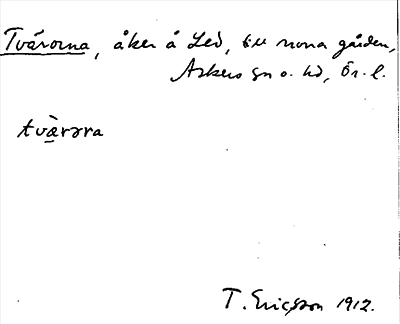 Tvärorna, åker å Led, till norra gården,
Askers sn o. hd, Ör. l.
tvæ̀rɔra
T. Ericsson 1912.